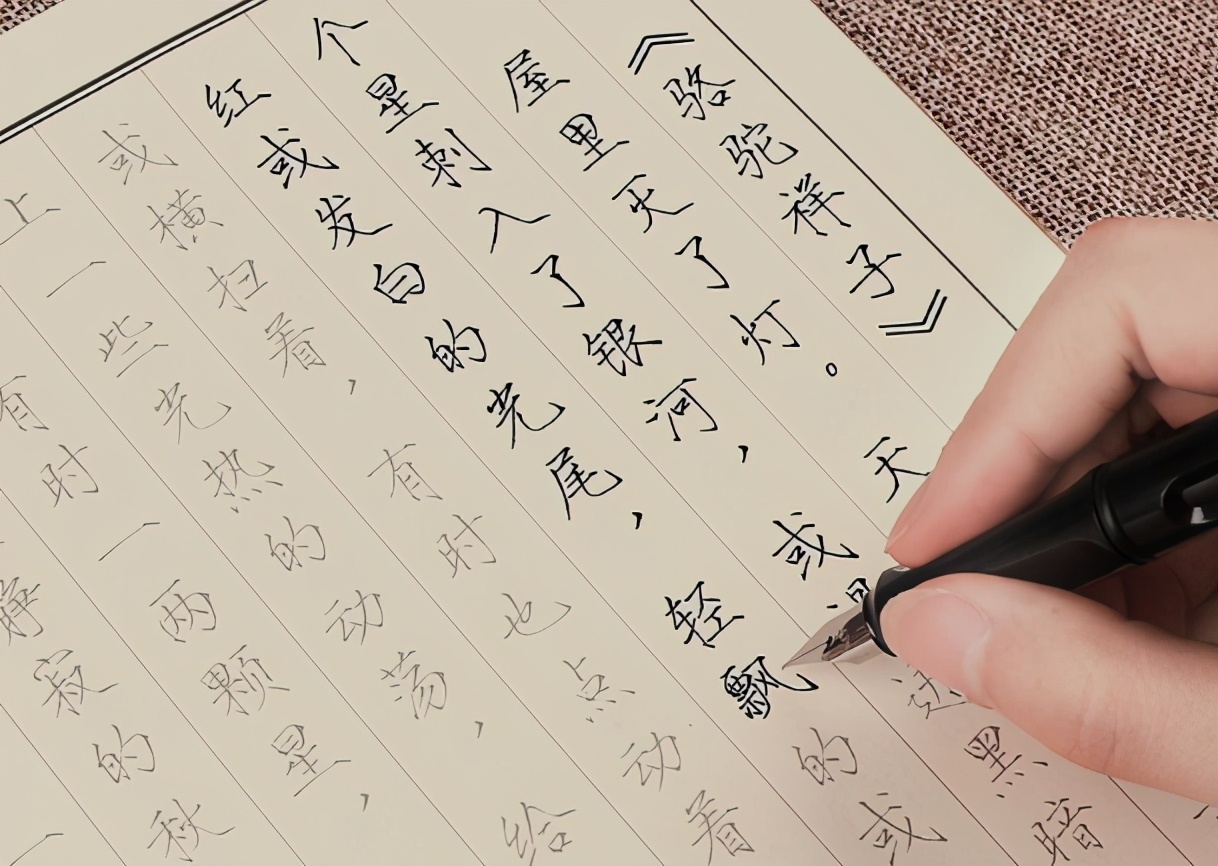 《骆驼祥子》
屋里灭了灯。天
个星刺入了银河，或黑暗
红或发白的光尾，轻飘的或
或横扫着，有时也点动着
上一些光热的动荡，给
有时一两颗星，
静寂的秋
一